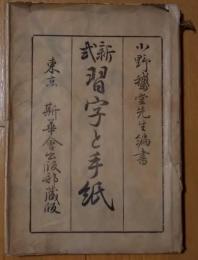 小野鵞堂先生編書
新式
習字と手紙
東京 斯華會出版部蔵版